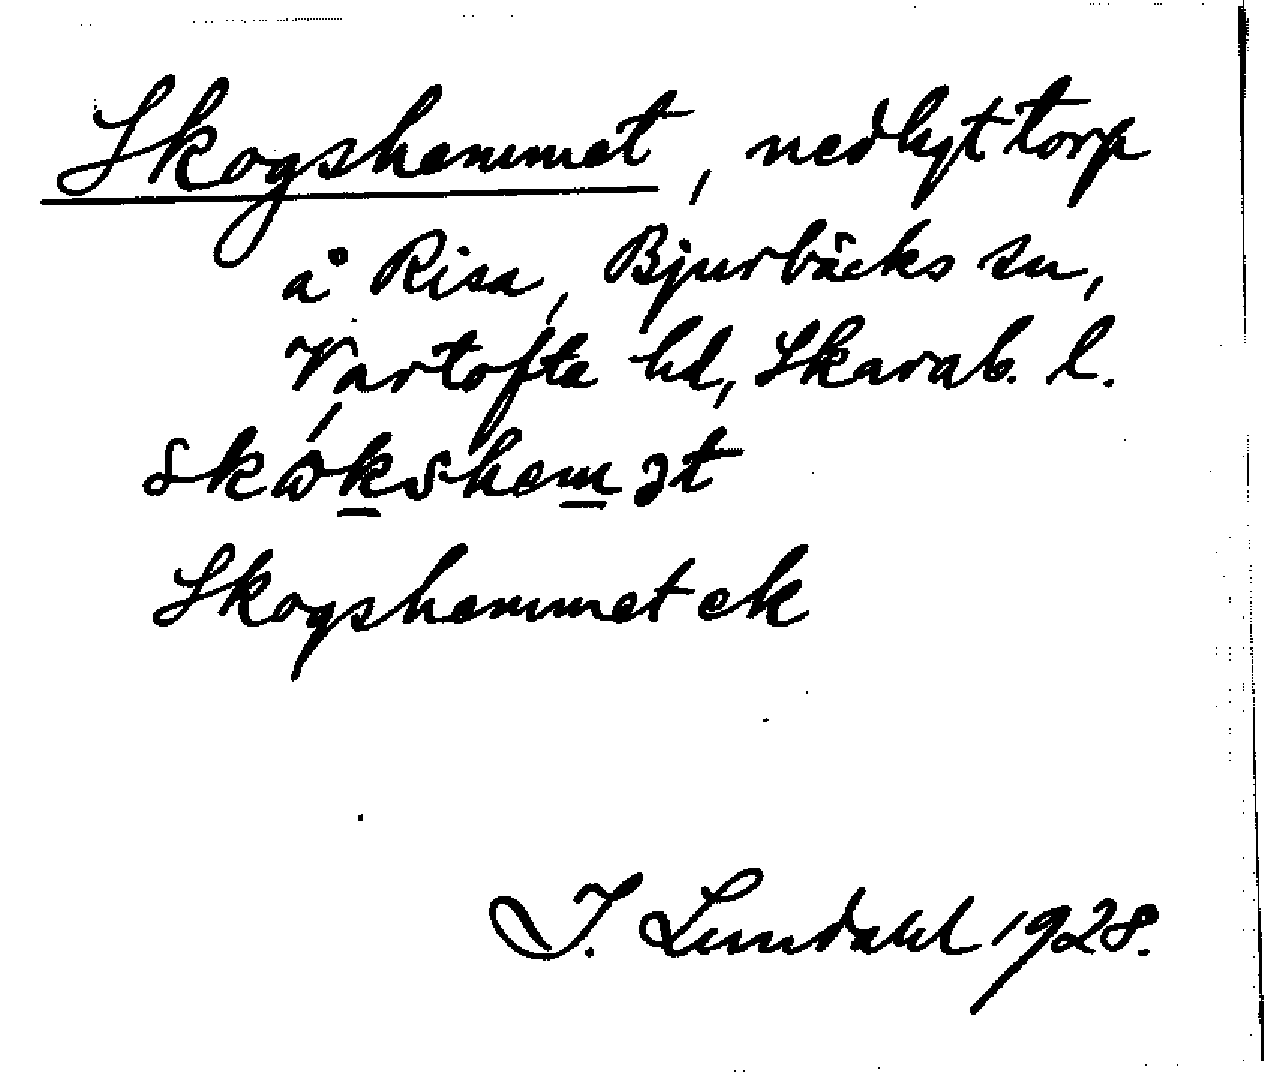 Skogshemmet, nedlyt torp
å Risa, Bjurbäcks sn,
Vartofta hd, Skarab. l.
skωkshemət
Skogshemmet ek
I. Lundahl 1928.